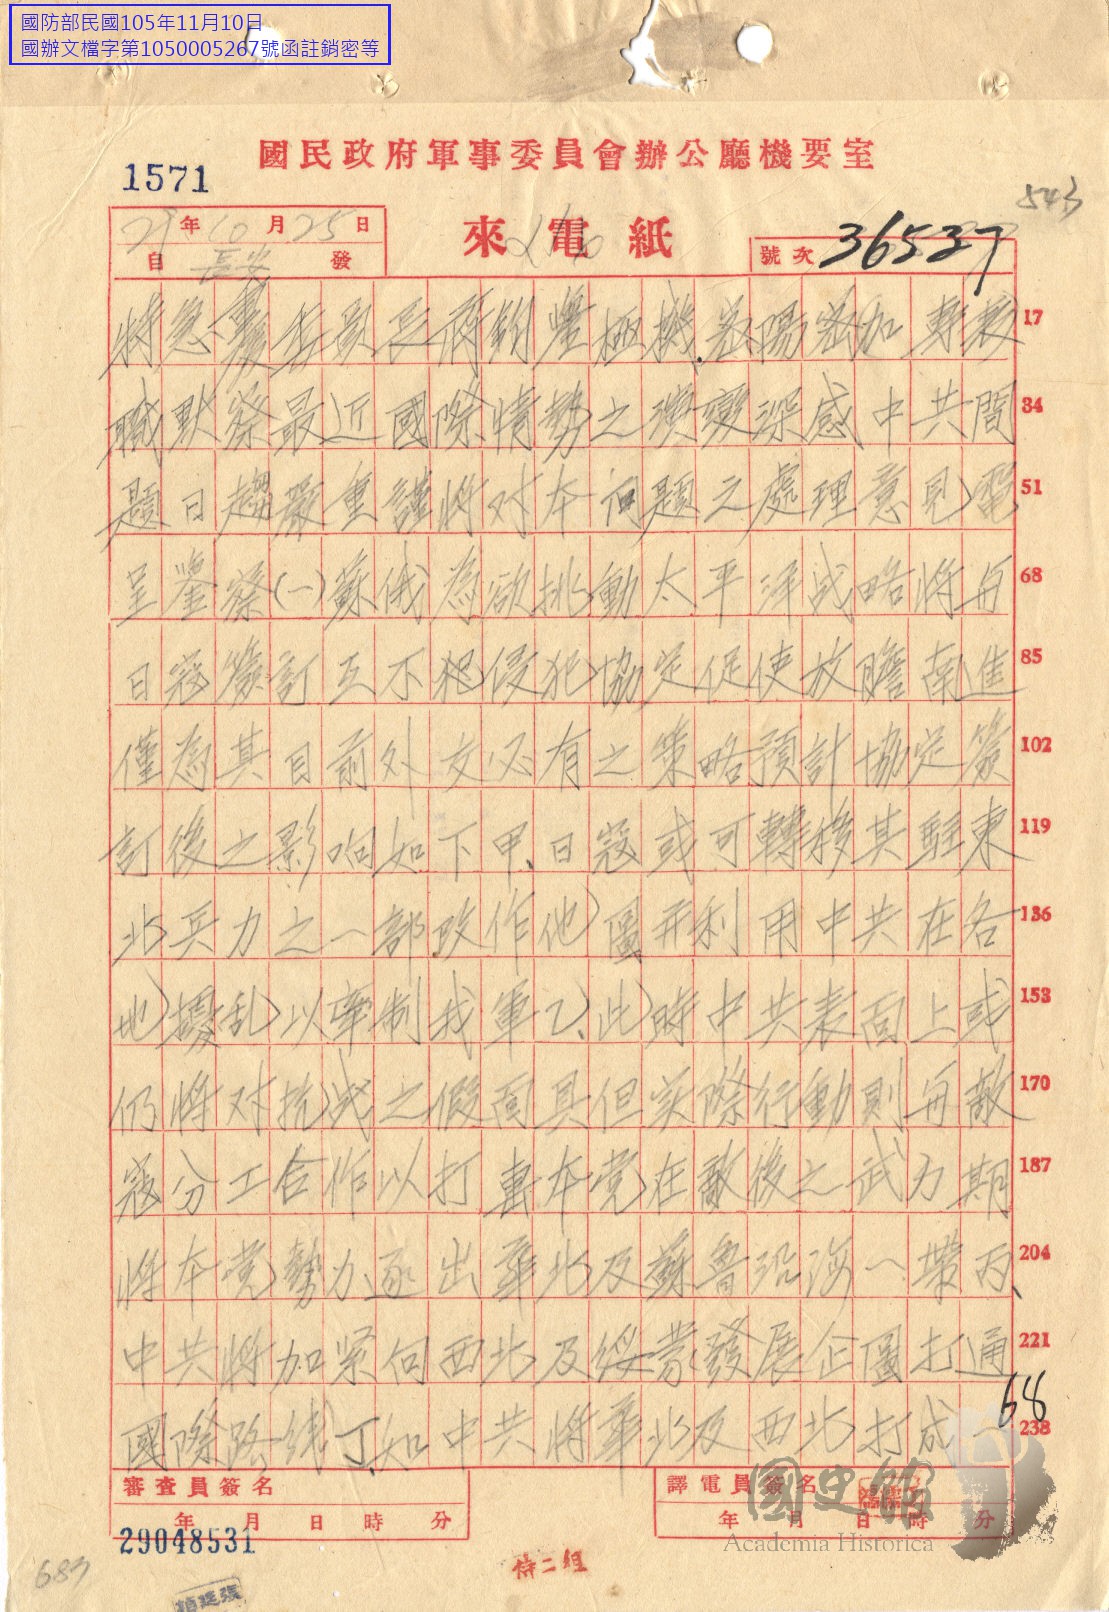 國防部民國105年11月10日
國辦文檔字第1050005267號函註銷密等
國民政府軍事委員會辦公廳機要室
1571
543
29年10月25日
來電紙
自長安發
號次 36537
特急重慶委員長蔣鈞鑒極機密陽密加表 17
職默察最近國際情勢之演變深感中共問 34
題日趨嚴重謹將对本问題之處理意見電 51
呈鑒察(一)蘇俄為欲挑動太平洋战略將与 68
日寇簽訂互不犯侵犯協定促使放膽南進 85
僅為其目前外交必有之策略預計協定簽 102
訂後之影响如下甲、日寇或可轉移其駐東 119
北兵力之一部改作他圖并利用中共在各 136
地擾乱以牽制我軍乙、此時中共表面上或 153
仍將对抗战之假面具但实際行動則与敵 170
寇分工合作以打擊本党在敵後之武力期 187
將本党勢力逐出華北及蘇魯沿海一帶丙、 204
中共將加紧向西北及綏蒙發展企圖打通 221
國際路线丁、如中共將華北及西北打成一 238
68
審查員簽名
年月日時分
譯電員簽名
年月日時分
29048531
國史館
Academia Historica
特二組
683